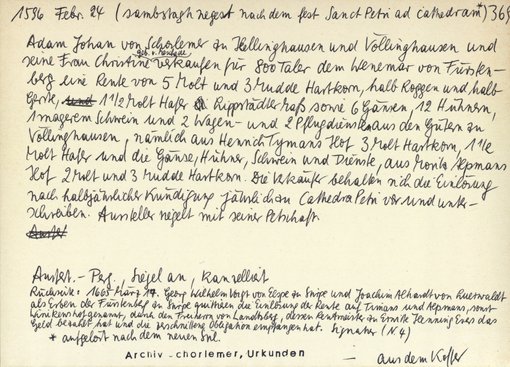 1596 Febr. 24 (sambstagh negest nach dem fest Sanct Petri ad cathedram*) 369
Adam Johan von Schorlemer zu Hellinghausen und Völlinghausen und
seine Frau Christine geb. v. verkaufen für 800 Taler dem Wenemar von Fürsten-
berg eine Rente von 5 Molt und 3 Mudde Hartkorn, halb Roggen und halb
Gerste, 11 1/2 Molt Hafer Rippstädter Maß sowie 6 Gänsen, 12 Hühnern,
1 magerem Schwein und 2 Wagen- und 2 Pflugdienste aus den Gütern zu
Völlinghausen, nämlich aus Henrich Tymans Hof 3 Molt Hartkorn, 11 1/2
Molt Hafer und die Gänse, Hühner, Schwein und Dienste, aus Moritz
Hof 2 Molt und 3 Mudde Hartkorn. Die Verkäufer behalten sich die Einlösung
nach halbjährlicher Kündigung jährlich zu Cathedra Petri vor und unter-
schreiben. Aussteller siegelt mit seiner Petschaft.
Ausfert. - Perg., Siegel an, kanzelliert
Rückseite: 1665 März 17. Georg Wilhelm Voigt von Elspe zu und Joachim von
als Erben der Fürstenberg zu quittieren die Einlösung der Rente auf Timans und sonst
genannt, durch den Freiherrn von Landsberg, dessen Rentmeister zu Erwitte Henning das
Geld bezahlt hat und die zerschnittene Obligation empfangen hat. Signatur (N 4)
* aufgelöst nach dem neuen Stil.
Archiv chorlemer, Urkunden
— aus dem Koffer